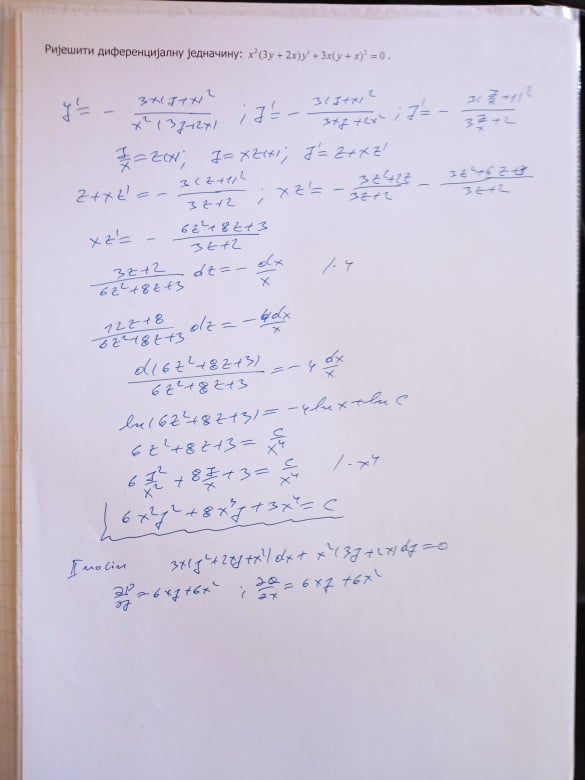 Ријешити диференцијалну једначину: x²(3y + 2x)y' + 3x(y + x)² = 0 .
y' = - 3x(y+x)² / x²(3y+2x) ; y' = - 3(y+x)² / 3xy+2x² ; y' = - 3(y/x+1)² / 3y/x+2
y/x = z(x); y = xz(x); y' = z+xz'
z+xz' = - 3(z+1)² / 3z+2 ; xz' = - 3z²+2z / 3z+2 - 3z²+6z+3 / 3z+2
xz' = - 6z²+8z+3 / 3z+2
3z+2 / 6z²+8z+3 dz = - dx/x /·4
12z+8 / 6z²+8z+3 dz = - 4dx/x
d(6z²+8z+3) / 6z²+8z+3 = -4 dx/x
ln(6z²+8z+3) = -4lnx+ln C
6z²+8z+3 = C/x⁴
6 y²/x² + 8 y/x + 3 = C/x⁴ /·x⁴
6x²y² + 8x³y + 3x⁴ = C
II način 3x(y²+2xy+x²)dx + x²(3y+2x)dy = 0
∂P/∂y = 6xy+6x² ; ∂Q/∂x = 6xy+6x²